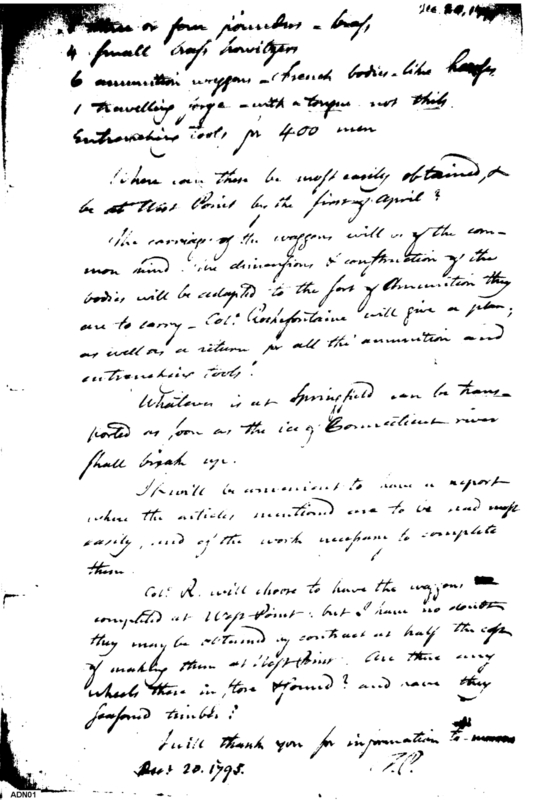 Dec. 20, 17
three or four pounders - brass
4 small brass howitzers
6 ammunition waggons - French bodies - like
1 travelling forge - with a tongue not thills
Entrenching tools for 400 men
Where can these be most easily obtained, &
be at West Point by the first of April?
The carriages of the waggons will be of the com-
mon kind. The dimensions & construction of the
bodies will be adapted to the sort of Ammunition they
are to carry - Colo. Rochefontaine will give a plan;
as well as a return for all the ammunition and
entrenching tools.
Whatever is at Springfield can be trans-
ported as soon as the ice of Connecticut river
shall break up.
It will be convenient to have a report
where the articles mentioned are to be had most
easily, and of the work necessary to complete
them.
Colo. R. will choose to have the waggons
completed at West Point: but I have no doubt
they may be obtained by contract at half the cost
of making them at West Point. Are there any
wheels there in store & found? and have they
seasoned timber?
I will thank you for information
Decr. 20. 1795.
T.P.
ADN01